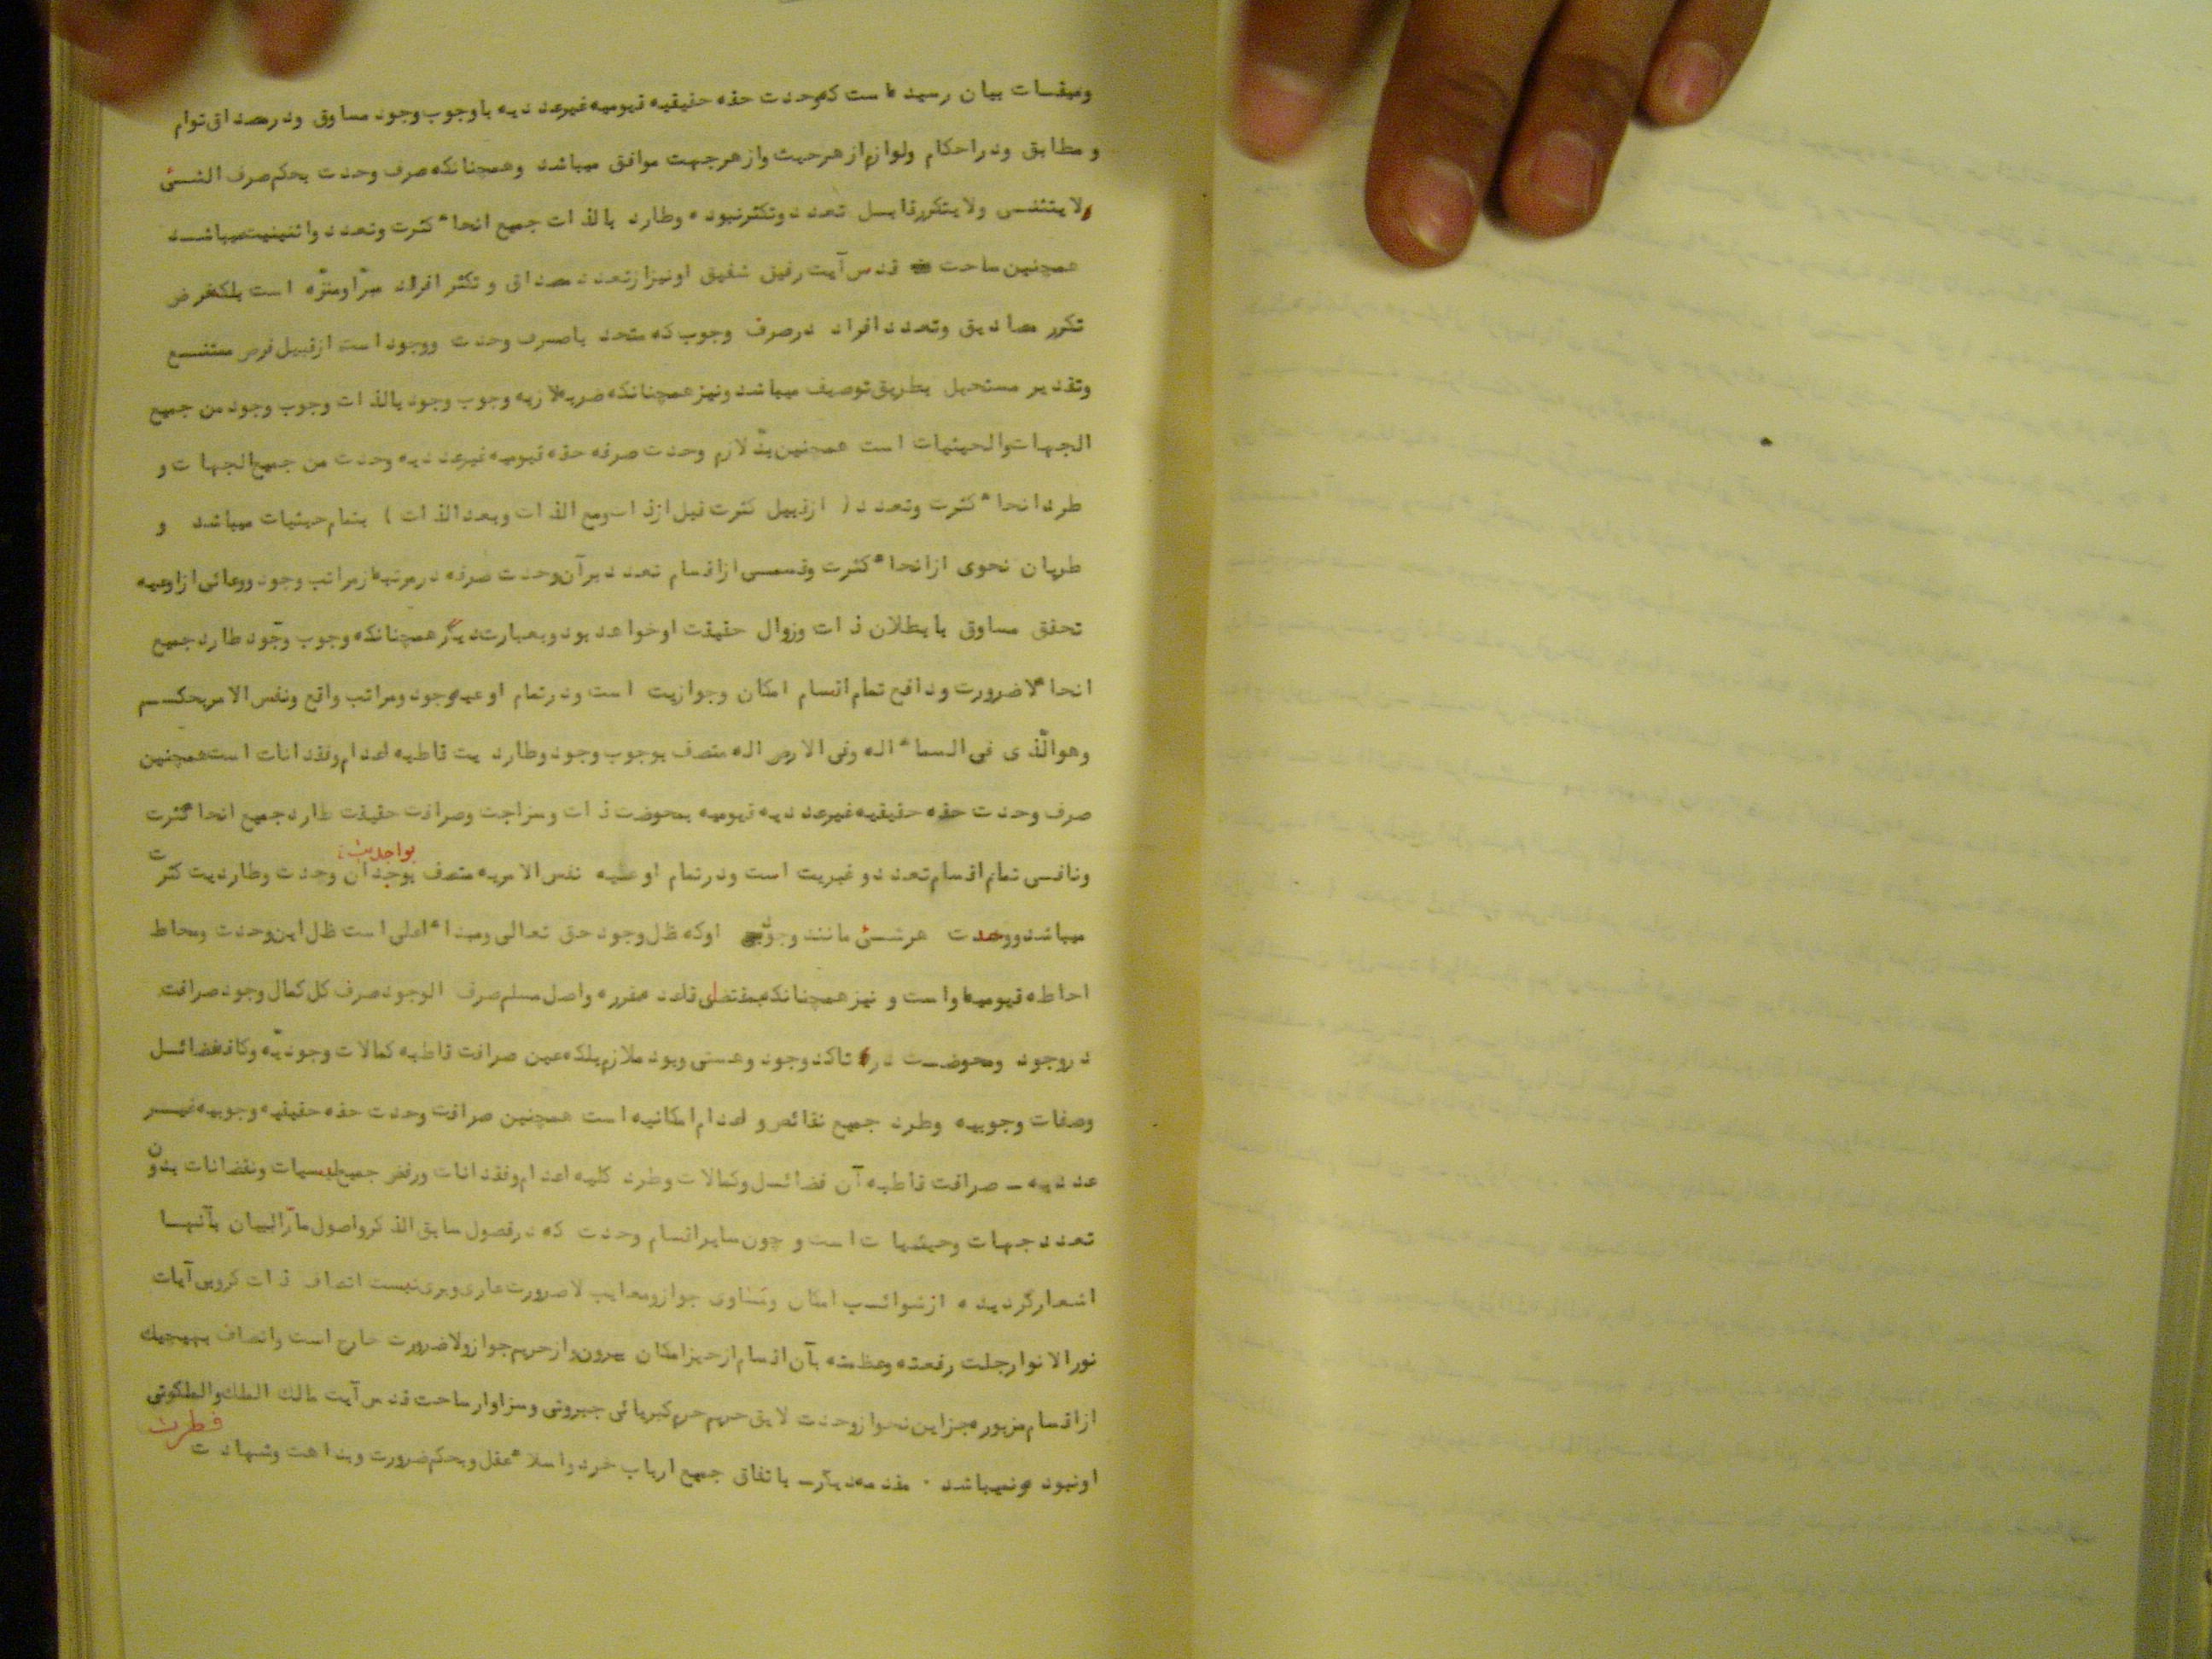 ومیقسات بیان رسیده است که وحدت حقه حقیقیه قیومیه غیرعددیه باوجوب وجود مساوق ودرمصداق توام
و مطابق ودراحکام ولوازم از هرحیث واز هرجهت موافق میباشد وهمچنانکه صرف وحدت بحکم صرف الشئ
لا یتثنی ولا یتکرر قابل تعدد وتکثر نبوده وطارد بالذات جمیع انحاء کثرت وتعدد واثنینیت میباشد
همچنین ساحت قدس آیت رفیق شفیق اونیز ازتعدد مصداق و تکثر افراد مبرّا ومنزّه است بلکه فرض
تکرر مصادیق وتعدد افراد درصرف وجوب که متحد باصرف وحدت ووجود است ازقبیل فرض ممتنع
وتقدیر مستحیل بطریق توصیف میباشد ونیز همچنانکه ضربه لازبه وجوب وجود بالذات وجوب وجود من جمیع
الجهات والحیثیات است همچنین بدّ لازم وحدت صرفه حقه قیومیه غیرعددیه وحدت من جمیع الجهات و
طرد انحاء کثرت وتعدد ( ازقبیل کثرت قبل ازذات ومع الذات وبعد الذات ) بتمام حیثیات میباشد و
طریان نحوی ازانحاء کثرت وقسمی ازاقسام تعدد برآن وحدت صرفه درمرتبه ازمراتب وجود ووعائی ازاوعیه
تحقق مساوق بابطلان ذات وزوال حقیقت اوخواهد بود وبعبارت دیگر همچنانکه وجوب وجود طارد جمیع
انحاء لاضرورت ودافع تمام اقسام امکان وجوازیت است ودرتمام اوعیه وجود ومراتب واقع ونفس الامر بحکم
وهوالّذی فی السماء اله وفی الارض اله متصف بوجوب وجود وطاردیت قاطبه اعدام وفقدانات است همچنین
صرف وحدت حقه حقیقیه غیرعددیه قیومیه بمحوضت ذات وسزاجت وصرافت حقیقت طارد جمیع انحاء کثرت
بواجدیت
ونافی تمام اقسام تعدد وغیریت است ودرتمام اوعیه نفس الامریه متصف بوجدان وحدت وطاردیت کثرت
میباشد ووحدت هرشئ مانند وجود اوکه ظل وجود حق تعالی ومبداء اعلی است ظل این وحدت ومحاط
احاطه قیومیه اواست و نیز همچنانکه بمقتضای قاعده مقرره واصل مسلم صرف الوجود صرف کل کمال وجود صرافت
دروجود ومحوضت در تاکد وجود وهستی وبود ملازم بلکه عین صرافت قاطبه کمالات وجودیّه وکافه فضائل
وصفات وجوبیه وطرد جمیع نقائص و اعدام امکانیه است همچنین صرافت وحدت حقه حقیقیه وجوبیه غیر
عددیه ـ صرافت قاطبه آن فضائل وکمالات وطرد کلیه اعدام وفقدانات ورفض جمیع لیسیات ونقصانات بدون
تعدد جهات وحیثیات است و چون سایر اقسام وحدت که درفصول سابق الذکر واصول مارّ البیان بآنها
اشعار گردیده ازشوائب امکان وتساوی جواز ومعایب لاضرورت عاری وبری نیست اتصاف ذات کروبی آیات
نورالانوار جلت رفعته وعظمته بآن اقسام ازحیز امکان بیرون واز حریم جواز ولاضرورت خارج است واتصاف بهیچیک
ازاقسام مزبوره جز این نحو ازوحدت لایق حریم حرم کبریائی جبروتی وسزاوار ساحت قدس آیت مالك الملك والملکوتی
اونبوده ونمیباشد ۰ مقدمه دیگر ـ باتفاق جمیع ارباب خرد واسلاء عقل وبحکم ضرورت وبداهت وشهادت
فطرت